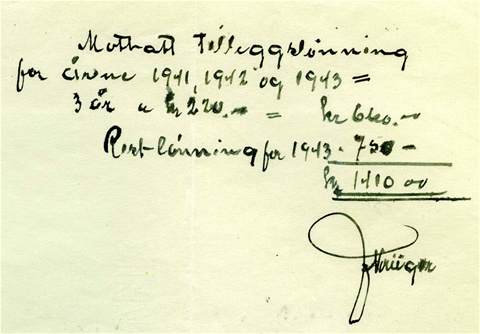 Motatt Tilleggslønning
for årene 1941, 1942 og 1943 =
3 år a kr 220.— = kr 660.—
Rest-lønning for 1943 - 750 —
kr 1410 00
Krüger